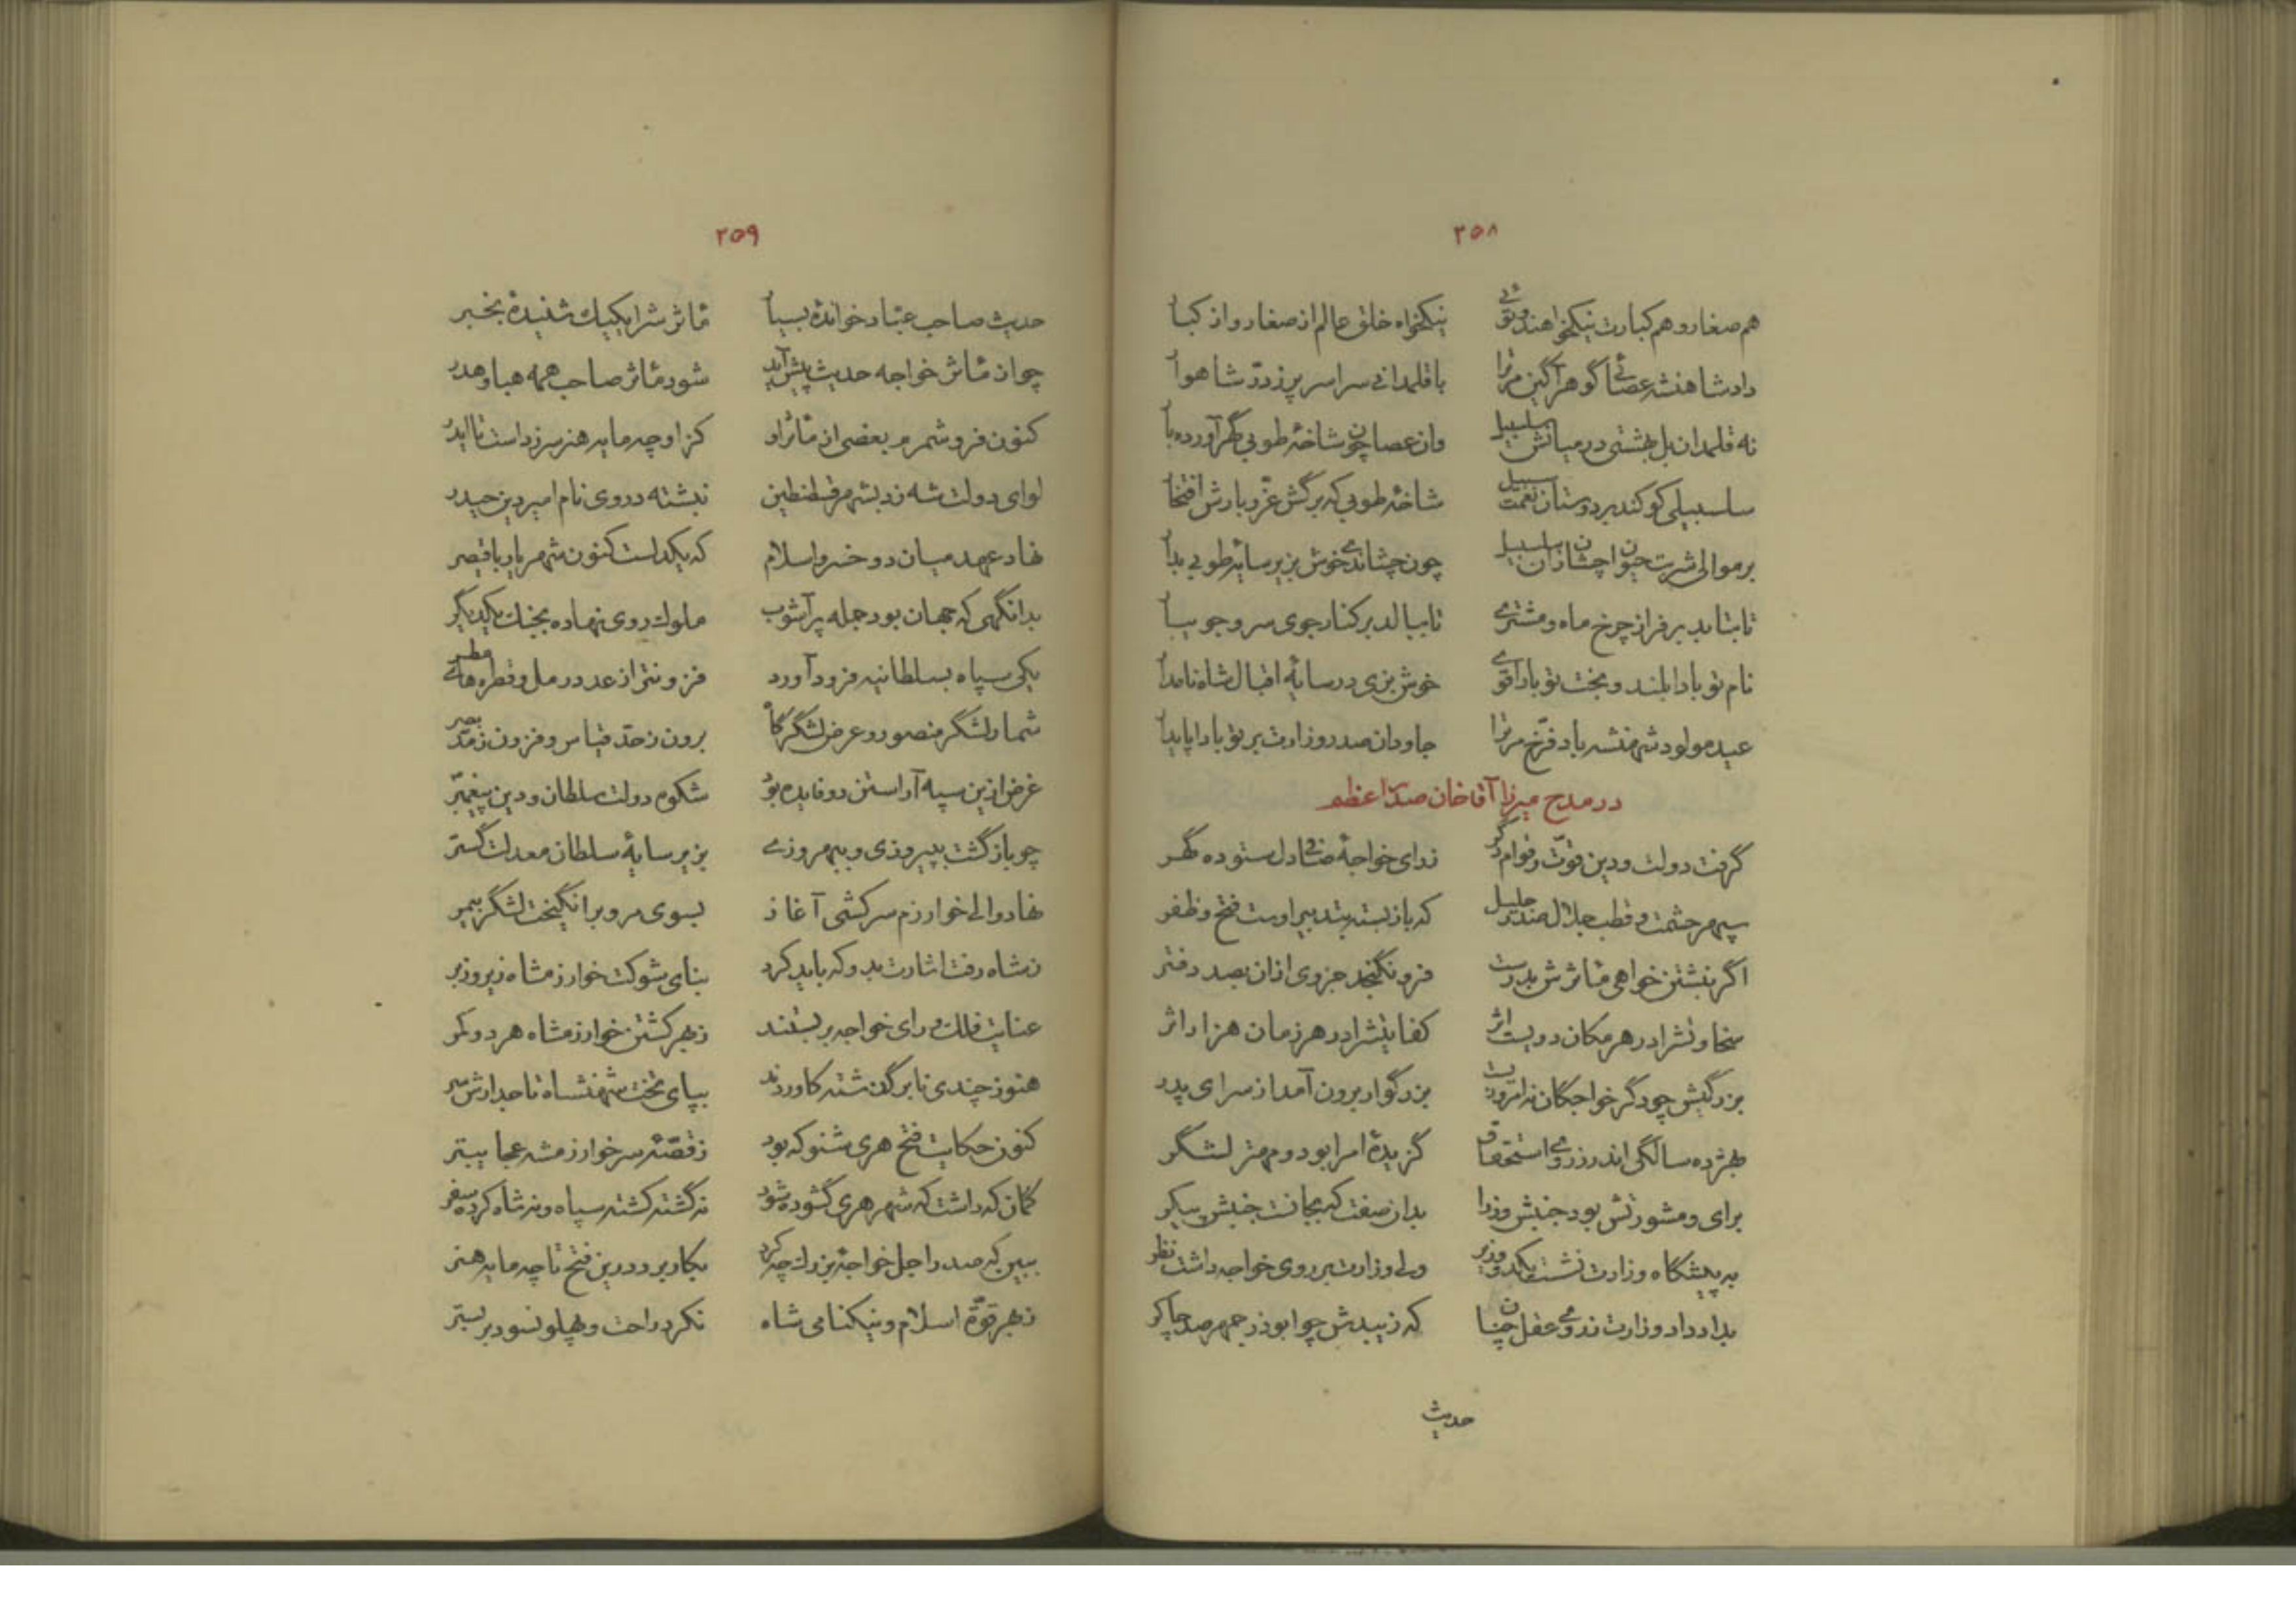 ۲۵۸
هم صغار و هم کبارت نیکخواهند و توئی نیکخواه خلق عالم از صغار و از کبار
داد شاهنشه عصائی گوهرآگین مر ترا با قلمدانی سراسر پر ز درّ شاهوار
نه قلمدان بل بهشتی در میانش سلسبیل وان عصا چون شاخهٔ طوبی گهر آورده بار
سلسبیلی کو کند بر دوستان نعمت سبیل شاخهٔ طوبی که برگش عزّ و بارش افتخار
بر موالی شربت حیوان چشان زان سلسبیل چون چشاندی خوش بزیر سایهٔ طوبی بدار
تا بتابد بر فراز چرخ ماه و مشتری تا ببالد بر کنار جوی سرو جویبار
نام تو بادا بلند و بخت تو بادا قوی خوش بزی در سایهٔ اقبال شاه نامدار
عید مولود شهنشه باد فرّخ مر ترا جاودان صدر وزارت بر تو بادا پایدار
در مدح میرزا آقا خان صدر اعظم
گرفت دولت و دین قوّت و قوام دگر ز رای خواجهٔ صافی دل ستوده گهر
سپهر حشمت و قطب جلال صدر جلیل که باز بسته بتدبیر اوست فتح و ظفر
اگر نبشتن خواهی مآثرش بدرست فرو نگنجد جزوی ازان بصد دفتر
سخاوتش را در هر مکان دویست اثر کفایتش را در هر زمان هزار اثر
بزرگیش چو دگر خواجگان نه امروز است بزرگوار برون آمد از سرای پدر
بهژده سالگی اندر ز روی استحقاق گزیدهٔ امرا بود و مهتر لشگر
برای و مشورتش بود جنبش وزرا بدان صفت که بجانست جنبش پیکر
به پیشگاه وزارت نشست یکدو وزیر ولی وزارت بر روی خواجه داشت نظر
بدار داد وزارت ز روی عقل چنان که زیبدش چو ابوذرجمهر صد چاکر
حدیث
۲۵۹
حدیث صاحب عبّاد خواندهٔ بسیار مآثرش را یکیک شنیدهٔ بخبر
چو از مآثر خواجه حدیث پیش آید شود مآثر صاحب همه هبا و هدر
کنون فرو شمرم بعضی از مآثر او کز او چه مایه هنر سر زداست تا ایدر
لوای دولت شه زد بشهر قسطنطین نبشته در روی نام امیر دین حیدر
نهاد عهد میان دو خسرو اسلام که یکدلست کنون شهریار با قیصر
بدانگهی که جهان بود جمله پر آشوب ملوک روی نهاده بجنک یکدیگر
یکی سپاه بسلطانیه فرود آورد فزونتر از عدد رمل و قطره‌های مطر
شمار لشگر منصور و عرض لشگرگاه برون ز حدّ قیاس و فزون ز مدّ بصر
غرض ازین سپه آراستن دو فایده بود شکوه دولت سلطان و دین پیغمبر
چو باز گشت بپیروزی و ببهروزی بزیر سایهٔ سلطان معدلت گستر
نهاد والی خوارزم سرکشی آغاز بسوی مرو برانگیخت لشگر بیمر
ز شاه رفت اشارت بدو که باید کرد بنای شوکت خوارزمشاه زیر و زبر
عنایت فلک و رای خواجه بر بستند ز بهر کشتن خوارزمشاه هر دو کمر
هنوز چندی نابرگذشته کاوردند بپای تخت شهنشاه تاجدارش سر
کنون حکایت فتح هری شنو که بود ز قصّهٔ سر خوارزمشه عجایبتر
گمان که داشت که شهر هری گشوده شود نه گشته کشته سپاه و نه شاه کرده سفر
ببین که صدر اجل خواجهٔ بزرک چه کرد بکار برد درین فتح تا چه مایه هنر
ز بهر قوّة اسلام و نیکنامی شاه نکرد راحت و پهلو نسود بر بستر